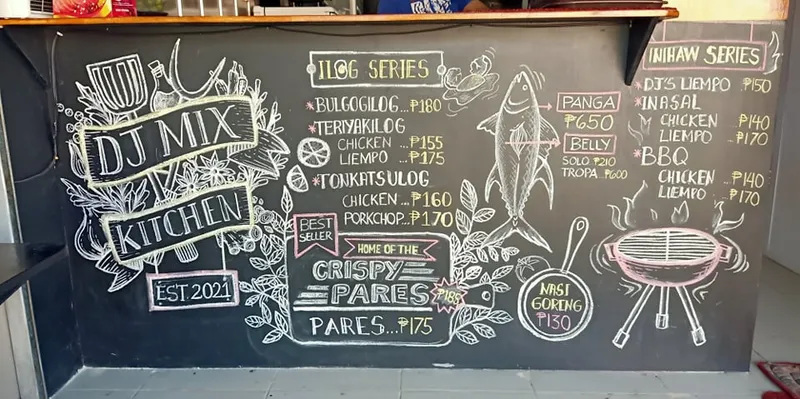 DJ MIX
KITCHEN
EST. 2021
ILOG SERIES
*BULGOGILOG...₱180
*TERIYAKILOG
CHICKEN...₱155
LIEMPO...₱175
*TONKATSULOG
CHICKEN...₱160
PORKCHOP...₱170
BEST SELLER
HOME OF THE
CRISPY
PARES
₱185
PARES...₱175
PANGA
₱650
BELLY
SOLO ₱210
TROPA..₱600
NASI
GORENG
₱130
INIHAW SERIES
*DJ'S LIEMPO ₱150
*INASAL
CHICKEN ₱140
LIEMPO ..₱170
*BBQ
CHICKEN ..₱140
LIEMPO .. ₱170